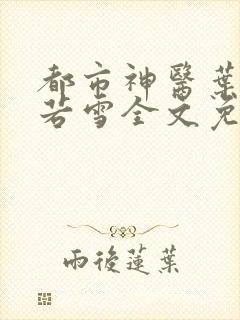 都市神醫葉
若雪全文免
雨後蓮葉